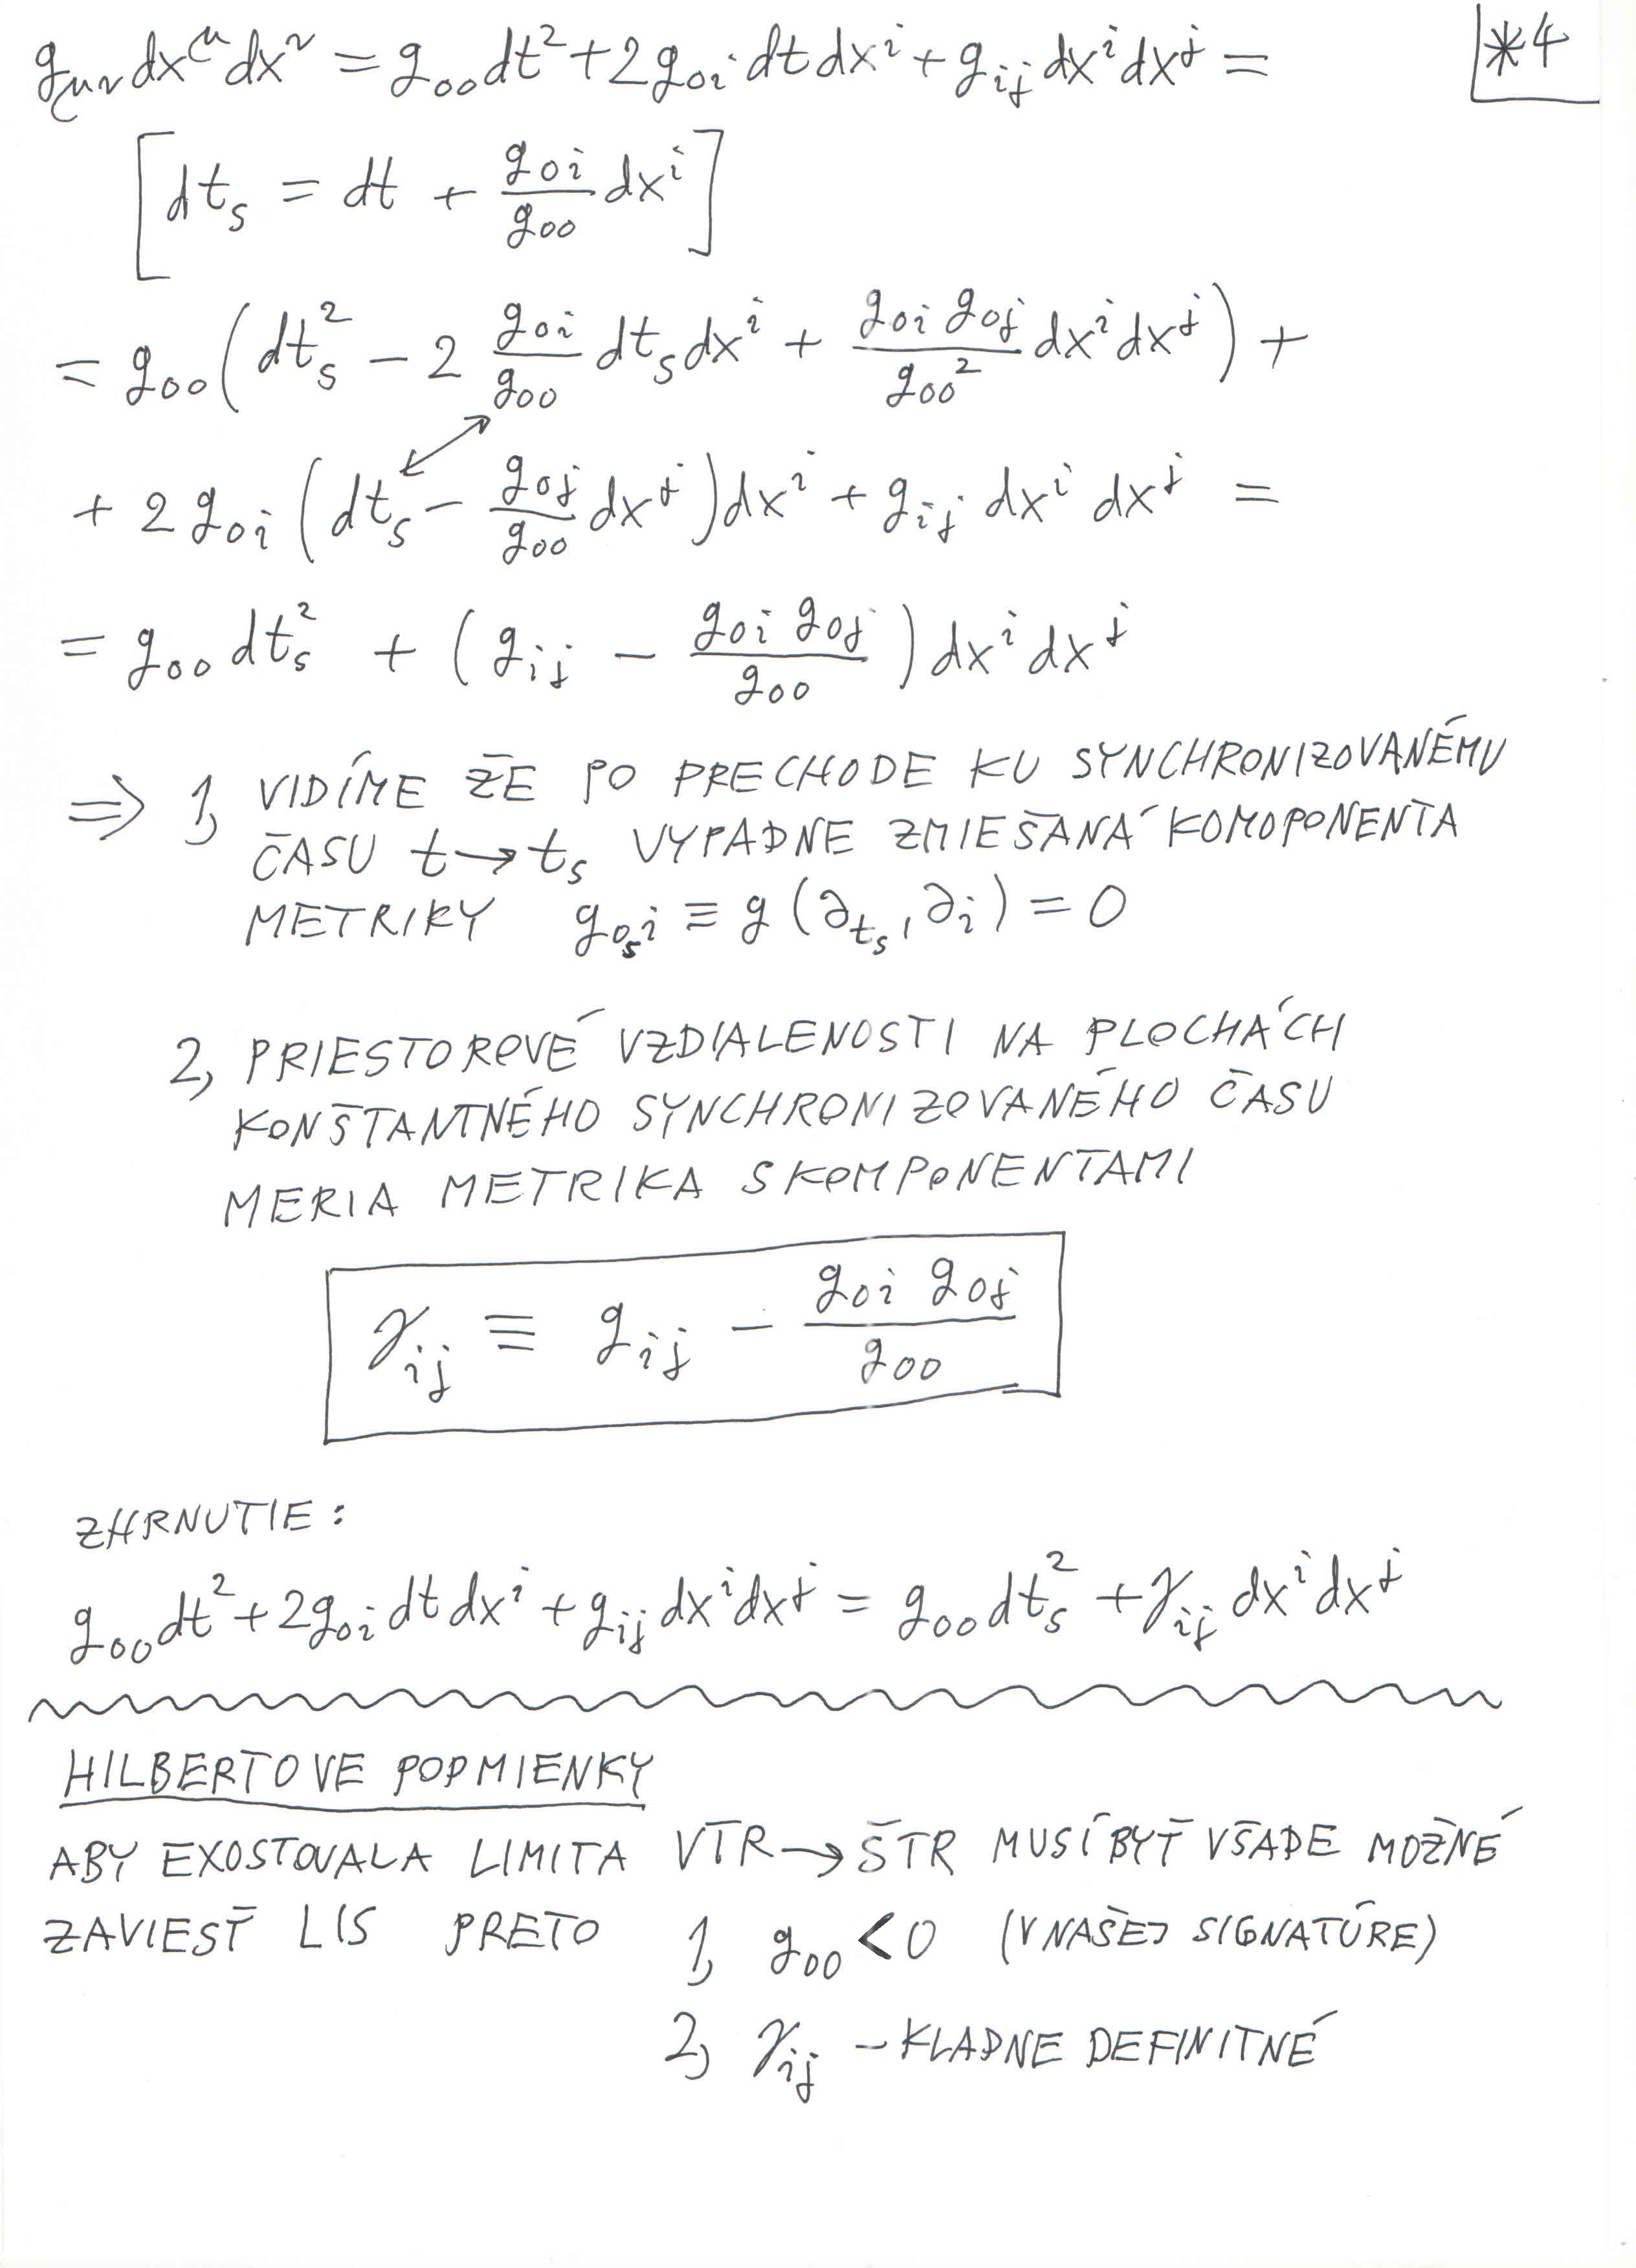 g_{μν} dx^μ dx^ν = g_{00} dt² + 2g_{0i} dt dx^i + g_{ij} dx^i dx^j =
*4
[dt_s = dt + \frac{g_{0i}}{g_{00}} dx^i]
= g_{00} (dt_s² - 2 \frac{g_{0i}}{g_{00}} dt_s dx^i + \frac{g_{0i} g_{0j}}{g_{00}²} dx^i dx^j) +
+ 2 g_{0i} (dt_s - \frac{g_{0j}}{g_{00}} dx^j) dx^i + g_{ij} dx^i dx^j =
= g_{00} dt_s² + (g_{ij} - \frac{g_{0i} g_{0j}}{g_{00}}) dx^i dx^j
⇒ 1, VIDÍME ŽE PO PRECHODE KU SYNCHRONIZOVANÉMU
ČASU t → t_s VYPADNE ZMIEŠANÁ KOMOPONENTA
METRIKY g_{0_s i} ≡ g (∂_{t_s}, ∂_i) = 0
2, PRIESTOROVÉ VZDIALENOSTI NA PLOCHÁCH
KONŠTANTNÉHO SYNCHRONIZOVANÉHO ČASU
MERIA METRIKA S KOMPONENTAMI
γ_{ij} ≡ g_{ij} - \frac{g_{0i} g_{0j}}{g_{00}}
ZHRNUTIE:
g_{00} dt² + 2g_{0i} dt dx^i + g_{ij} dx^i dx^j = g_{00} dt_s² + γ_{ij} dx^i dx^j
HILBERTOVE PODMIENKY
ABY EXOSTOVALA LIMITA VTR → ŠTR MUSÍ BYŤ VŠADE MOŽNÉ
ZAVIESŤ LIS PRETO 1, g_{00} < 0 (V NAŠEJ SIGNATÚRE)
2, γ_{ij} - KLADNE DEFINITNÉ